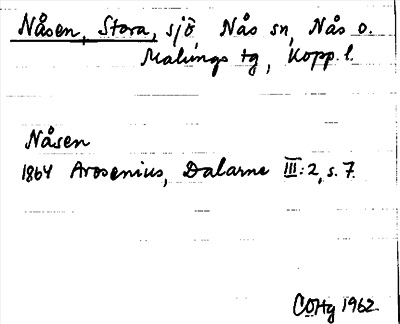 Nåsen, Stora, sjö, Nås sn, Nås o.
Malungs tg, Kopp. l.
Nåsen
1864 Arosenius, Dalarne III:2, s. 7.
COHg 1962